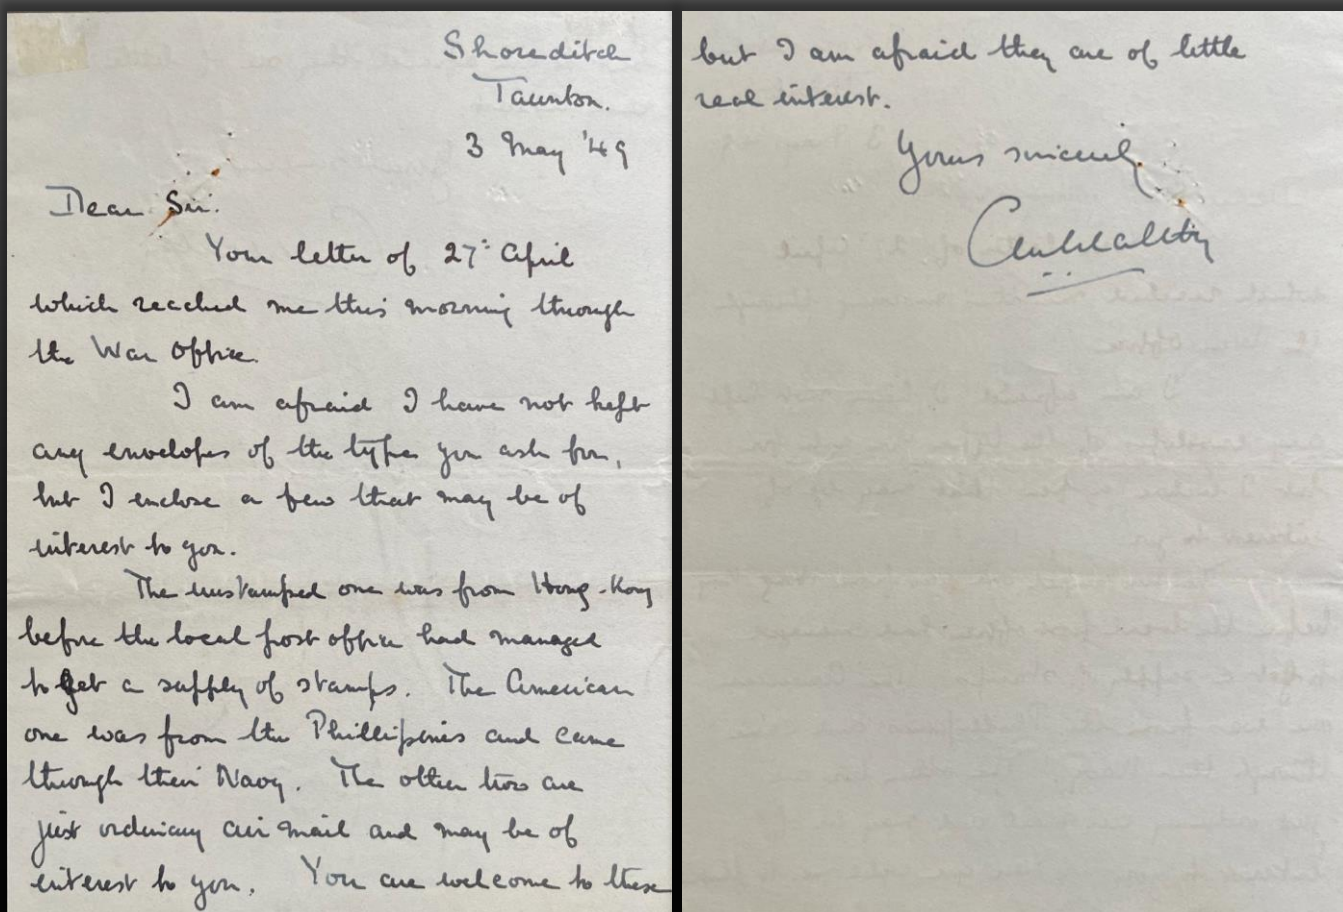 Shoreditch
Taunton.
3 May '49
Dear Sir.
Your letter of 27th April
which reached me this morning through
the War Office.
I am afraid I have not kept
any envelopes of the types you ask for,
but I enclose a few that may be of
interest to you.
The unstamped one was from Hong-Kong
before the local post office had managed
to get a supply of stamps. The American
one was from the Phillipines and came
through their Navy. The other two are
just ordinary air mail and may be of
interest to you. You are welcome to these
but I am afraid they are of little
real interest.
Yours sincerely